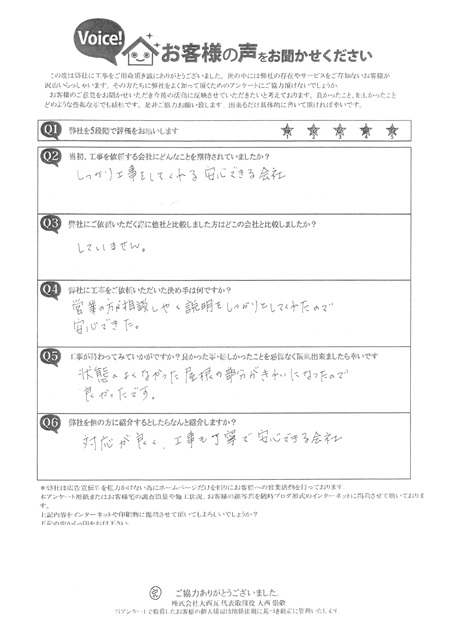 Voice!
お客様の声をお聞かせください
この度は弊社に工事をご用命頂き誠にありがとうございました。世の中には弊社の存在やサービスをご存知ないお客様が
沢山いらっしゃいます。その方たちに弊社をよく知って頂くためのアンケートにご協力頂けないでしょうか。
お客様のご意見をお聞かせいただき今後の活動に反映させていただきたいと考えております。良かったこと、嬉しかったこと
どのような些細な事でも結構です。是非ご協力お願い致します。出来るだけ具体的に書いて頂ければ幸いです。
Q1 弊社を5段階で評価をお願いします
1 2 3 4 5
Q2 当初、工事を依頼する会社にどんなことを期待されていましたか？
しっかり工事をしてくれる安心できる会社
Q3 弊社にご依頼いただく際に他社と比較しました方はどこの会社と比較しましたか？
していません。
Q4 弊社に工事をご依頼いただいた決め手は何ですか？
営業の方が相談しやく説明をしっかりとしてくれたので
安心できた。
Q5 工事が終わってみていかがですか？良かった事・嬉しかったことを忌憚なく御記出来ましたら幸いです
状態のよくなかった屋根の部分がきれいになったので
良かったです。
Q6 弊社を他の方に紹介するとしたらなんと紹介しますか？
対応が良く、工事も丁寧で安心できる会社
＊弊社は広告宣伝費を極力かけない為にホームページだけを利用にお客様への営業活動を行っております
本アンケート用紙またはお客様宅の調査風景や施工状況、お客様の顔写真を随時ブログ形式のインターネットに掲載させて頂いておりま
す。
上記内容をインターネットや印刷物に掲載させて頂いてもよろしいでしょうか？
ご協力ありがとうございました。
株式会社大西瓦 代表取締役 大西 崇敬
当アンケートで投稿したお客様の個人情報は法律法規に基づき厳正に管理いたします。